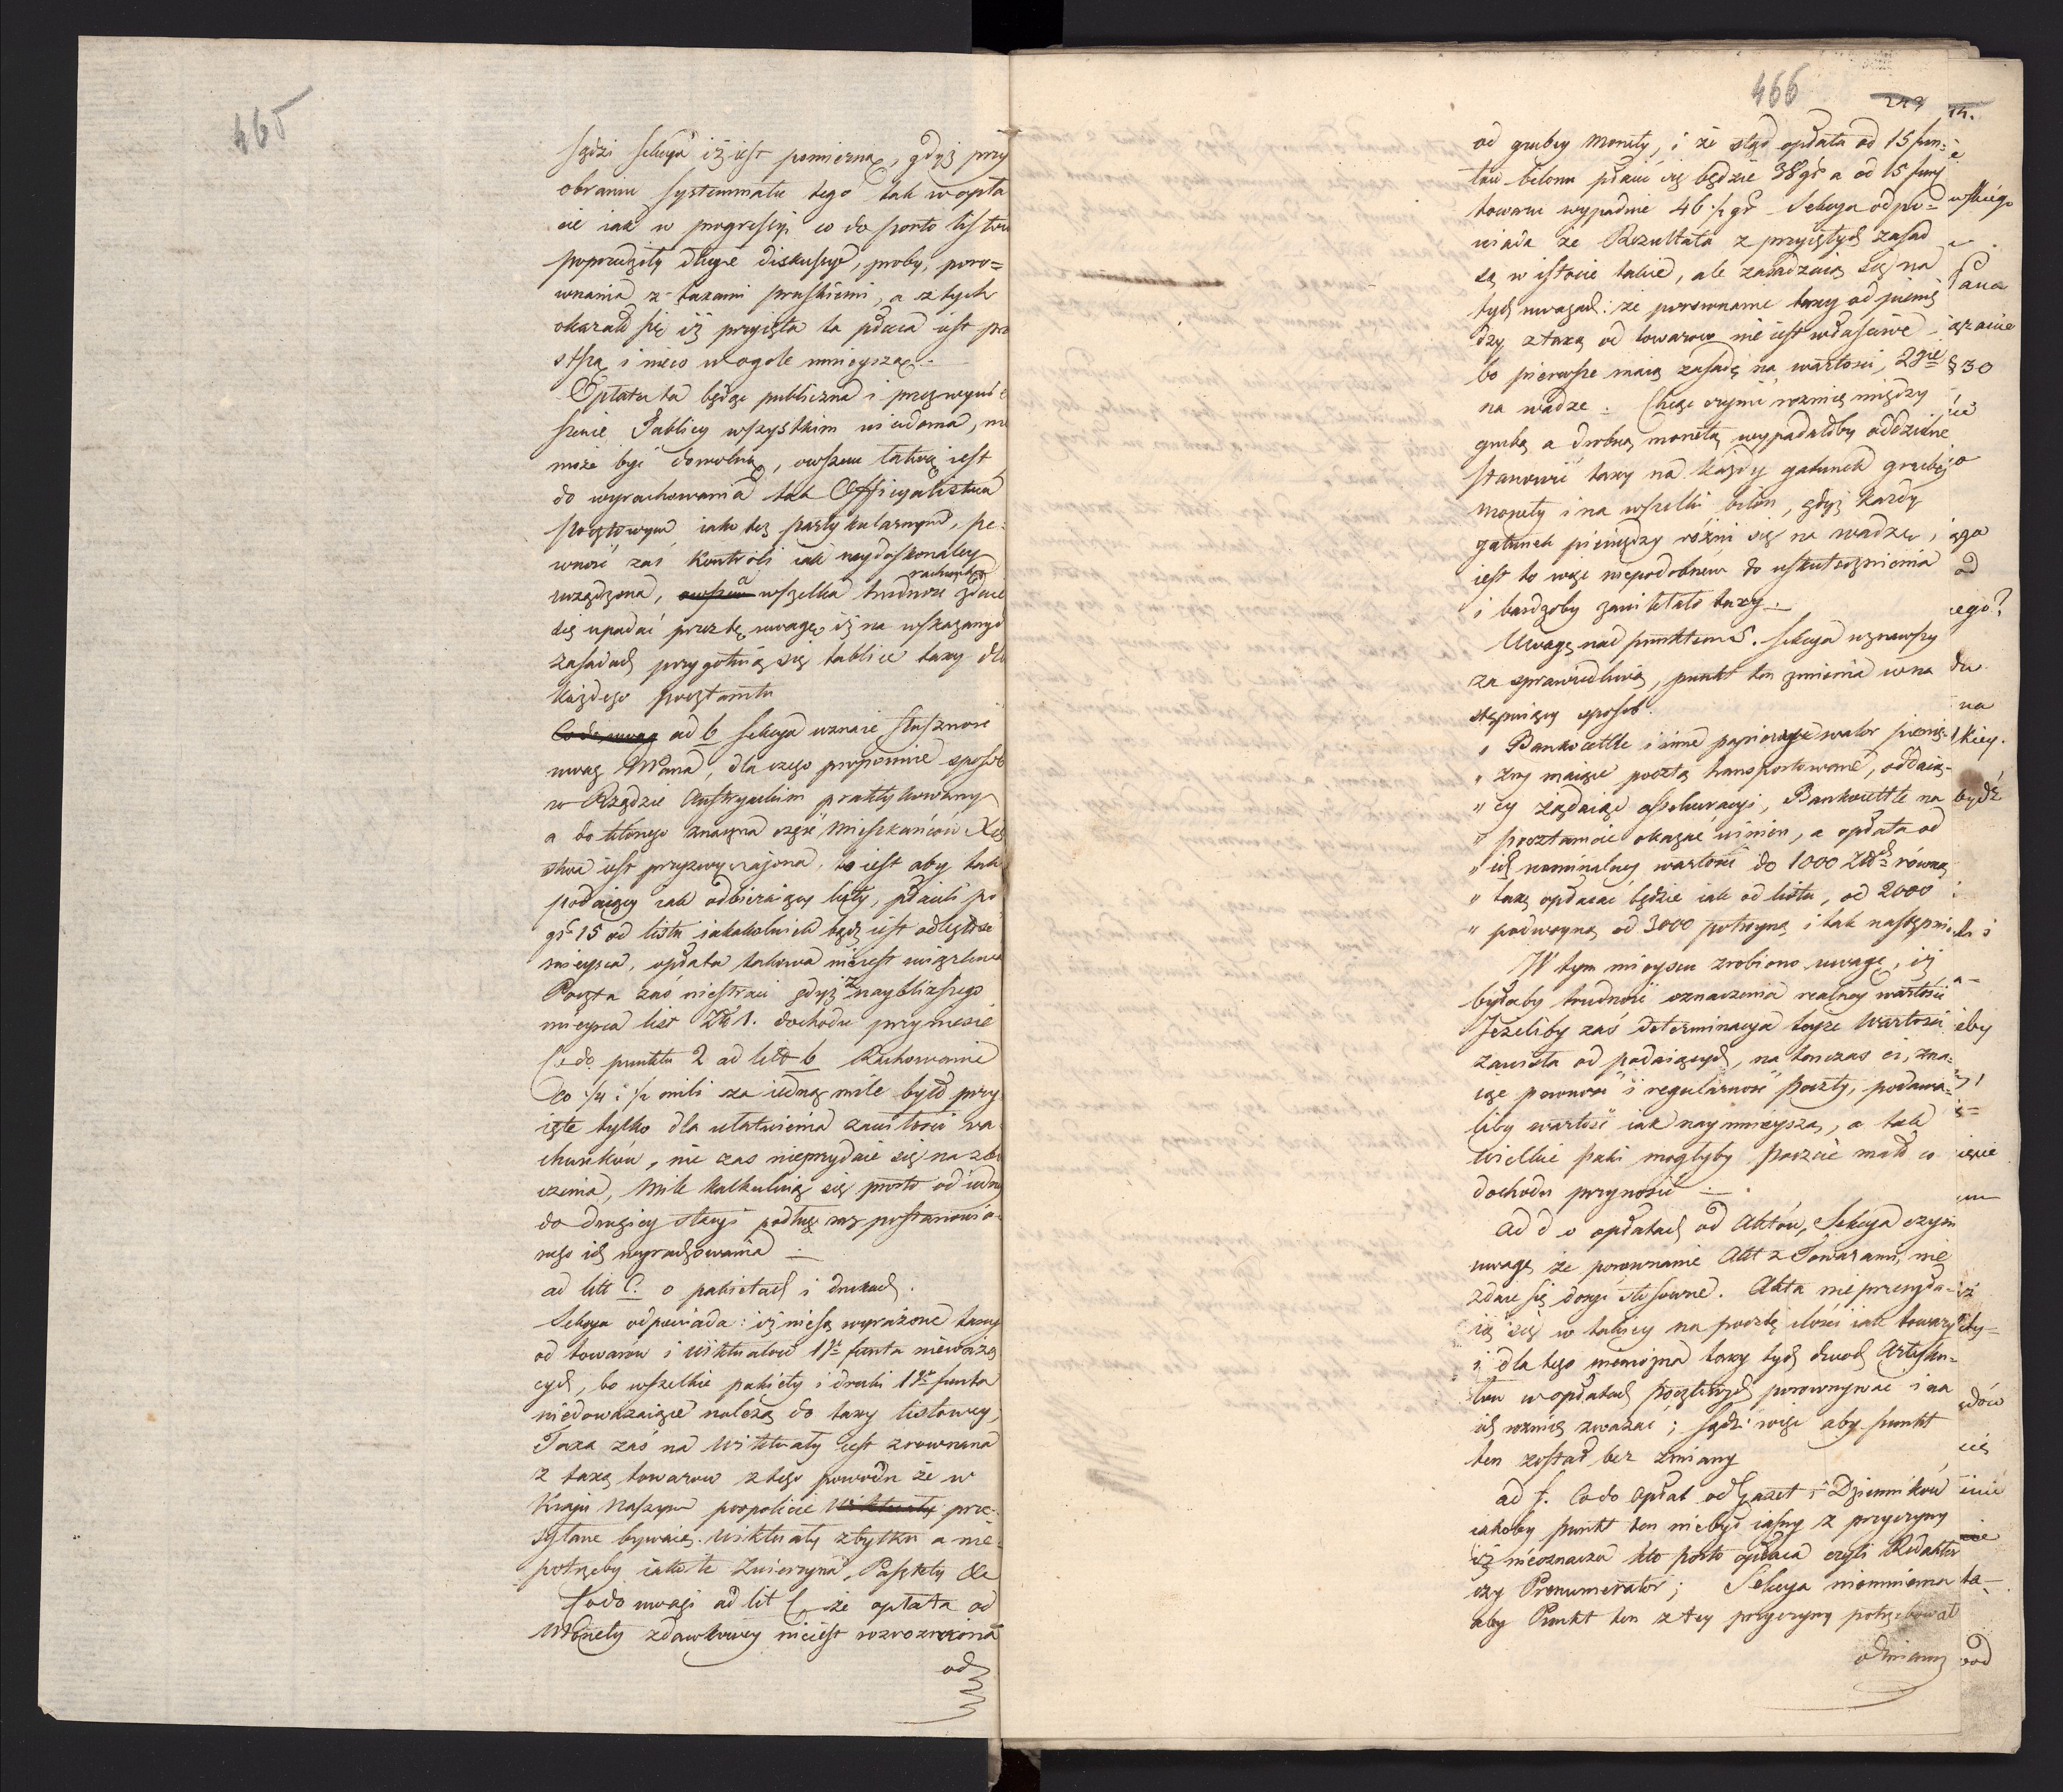 465
sądzi Sekcya iż iest pomierną, gdyż przy
obraniu systemmatu tego tak w opła
cie iak w progressyi co do porto listów
poprzedziły długie diskussye, proby, poro=
wnania z taxami pruskiemi, a z tych
okazało się iż przyięta ta płaca iest pro
stszą i nieco w ogole mnieyszą.
Opłata ta będąc publiczna i przez wywie
szenie Tablicy wszystkim wiadoma, nie
może być dowolną, owszem łatwą iest
do wyrachowania tak Officyalistom
pocztowym iako też partykularnym, pe=
wność zaś kontroli iak naydoskonaley
rachunków
urządzona, owszem wszelka trudność zdaie
się upadać przez tę uwagę iż na wskazanych
zasadach przygotuią się tablice taxy dla
każdego pocztamtu
Co do uwag ad b Sekcya uznaie słuszność
uwag Mana, dla czego proponuie sposob
w Rządzie Austryackim praktykowany
a do którego znaczna część Mieszkańców Xię
stwa iest przyzwyczajona, to iest aby tak
podaiący iak odbieraiący listy, płacili po
gr 15 od listu iakakolwiek bądź iest odległość
mieysca, opłata takowa nieiest uciążliwa
Poczta zaś niestraci gdyż z naybliższego
mieysca list Złł 1. dochodu przyniesie
Co do punktu 2 ad litt b Rachowanie
co 1/4 i 1/2 mili za iedną milę było przy
ięte tylko dla ułatwienia zawiłości ra
chunków, nie zas nieprzydaie się na zbo
czenia, Mile kalkuluią się prosto od iedney
do drugiey stacyi podług raz postanowio
nego ich wyrachowania
ad litt C. o pakietach i drukach.
Sekcya odpowiada: iż niesą wyrażone taxy
od towarow i wiktuałow 1go funta nieważą
cych, bo wszelkie pakiety i druki 1go funta
niedoważaiące należą do taxy listowey,
Taxa zaś na wiktuały iest zrownana
z taxą towarow z tego powodu że w
kraju naszym pospolicie wiktuały prze=
syłane bywaią wiktuały zbytku a nie=
potrzeby iako to Zwierzyna, Pasztety &c
Co do uwagi ad lit C że opłata od
Monety zdawkowey nieiest rozrozniona
od
466
249
od grubey monety, i że stąd opłata od 15 fun=
tow bilonu płacić się będzie 38 gr a od 15 funt
towaru wypadnie 46 1/2 gr Sekcya odpo=
wiada że Rezultata z przyiętych zasad
są w istocie takie, ale zasadzaią się na
tych uwagach: że porownanie taxy od pienię
dzy z taxą od towarow nie iest właściwe
bo pierwsze maią zasadę na wartości, 2gie
na wadze: Chcąc czynić roznicę między
grubą a drobną monetą wypadałoby oddzielne
stanowić taxy na każdy gatunek grubéy
monety i na wszelki bilon, gdyż każdy
gatunek pieniędzy rożni się na wadze,
iest to więc niepodobném do uskutecznienia
i bardzoby zawikłało taxy.
Uwagę nad punktem 5. Sekcya uznawszy
za sprawiedliwą, punkt ten zmienia w na
stępuiący sposob.
„ Bankocetle i inne papierowe walor pienię=
„ zny maiące pocztą transportowane, oddaią=
„ cy żądaiąc assekuracyi, Bankocetle na
„ pocztamcie okazać winien, a opłata od
„ ich nominalney wartości do 1000 Złł równą
„ taxę opłacać będzie iak od listu, od 2000
„ podwoyną od 3000 potroyną i tak następnie
W tym mieyscu zrobiono uwagę, iż
byłaby trudność oznaczenia realney wartości
Jeżeliby zaś determinacya teyże wartości
zawisła od podaiących, na tenczas ci, zna=
iąc pewność i regularność Poczty, podawa=
liby wartość iak naymnieyszą, a tak
wielkie paki mogłyby poczcie mało co
dochodu przynosić
ad d o opłatach od Aktów, Sekcya czyni
uwagę że porownanie Akt z Towarami, nie
zdaie się dosyć stosowne. Akta nie przesyła=
ią się w takiey na pocztę ilości iak towary
i dla tego niemożna taxy tych dwoch artyku=
łow w opłatach pocztowych porownywac i na
ich roznicę zważac; sądzi więc aby punkt
ten został bez zmiany
ad f. Co do Opłat od Gazet i Dzienników
iakoby punkt ten niebył iasny z przyczyny
iż nieoznacza kto porto opłaca czyli Redaktor
czy Prenumerator; Sekcya niemniema
aby Punkt ten z tey przyczyny potrzebował
odmiany
wskiégo
Pana
§ 30
go
od
iego?
na
kiey.
bydź
od